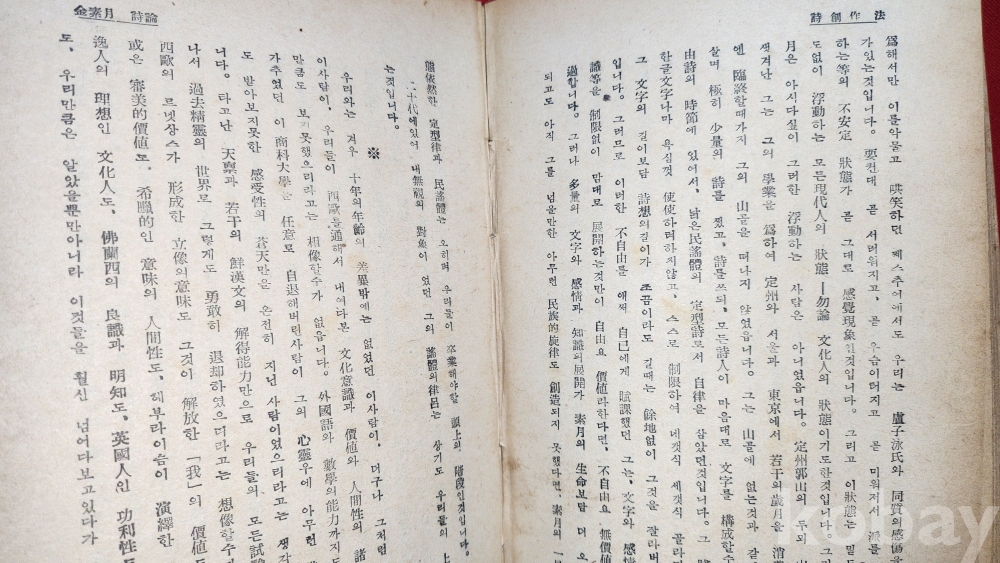 詩創作法
爲해서만 이를악물고 哄笑하던 제스추어에서도 우리는 盧子泳氏와 同質의感傷을
가있는것입니다. 要컨데 곧 서러워지고, 곧 우슴이터지고 곧 미워저서 派를
하는等의 不安定 狀態가 곧 그대로 感覺現象일것입니다. 그리고 이狀態는 밑
도없이 浮動하는 모든現代人의 狀態―勿論 文化人의 狀態이기도한것입니다. 그
月은 아시다싶이 그러한 浮動하는 사람은 아니였읍니다. 定州郭山의 두 山
생겨난 그는 그의 學業을 爲하여 定州와 서울과 東京에서 若干의歲月을 消
엔 臨終할때가지 그의 山골을 떠나지 않었읍니다. 그는 山골에 없는것과 같
살며 極히 少量의 詩를 썼고, 詩를 쓰되, 모든詩人이 마음대로 文字를 構成할수
由詩의 時節에 있어서, 낡은民謠體의 定型詩로서 自律을 삼았던것입니다. 그
한글文字나마 욕심껏 使使하려하지않고, 스스로 制限하여 네갯식 세갯식 골라
그 文字의 길이보담 詩想의길이가 조곰이라도 길때는 餘地없이 그것을 잘라버
입니다. 그러므로 이러한 不自由를 애써 自己에게 賦課했던 그는, 文字와 感情
識等을 制限없이 맘대로 展開하는것만이 自由요 價値라한다면, 不自由요 無價
過합니다. 그러나 多量의 文字와 感情과 知識의展開가 素月의 生命보담 더 오
되고도 아직 그를 넘을만한 아무런 民族的旋律도 創造되지 못했다면, 素月의 一
金素月 詩論
態依然한 定型律과 民謠體는 오히려 우리들이 卒業해야할 頭上의 階段입것입니다.
二十代에있어 내無視의 對象이 였던 그의 謠體의律呂는 상기도 우리들의 上
는것입니다.
※
우리와는 겨우 十年의年齡의 差異밖에는 없었던 이사람이, 더구나 그처럼
이사람이, 우리들이 西歐를通해서 내여다본 文化意識과 價値와 人間性의 諸
만큼도 보지못했으리라고는 想像할수가 없읍니다. 外國語와 數學의能力까지도
가추었던 이 商科大學을 任意로 自退해버린사람이 그의 心靈우에 아무런
도 받아보지못한 感受性의 蒼天만을 온전히 지닌 사람이었으리라고는 생각
니다. 타고난 天稟과 若干의 鮮漢文의 解得能力만으로 우리들의 모든試
나서 過去精靈의 世界로 그렇게도 勇敢히 退却하였으더라고는 想像할수
西歐의 르넷상스가 形成한 立像의意味도 그것이 解放한 「我」의 價値
或은 審美的價値도, 希臘的인 意味의 人間性도, 헤부라이슴이 演繹한
逸人의 理想인 文化人도, 佛蘭西의 良識과 明知도, 英國人인 功利性도
도, 우리만큼은 알았을뿐만아니라 이것들을 훨신 넘어다보고있다가
kobay